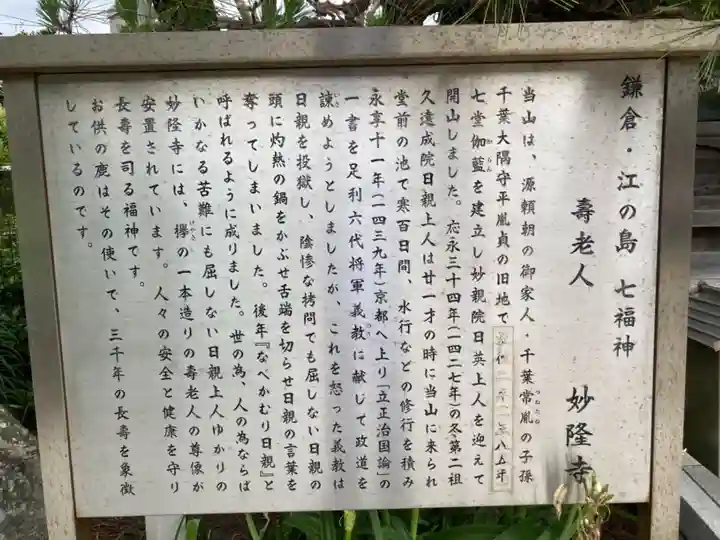 鎌倉・江の島 七福神
壽老人 妙隆寺
当山は、源頼朝の御家人・千葉常胤の子孫
つねたね
千葉大隅守平胤貞の旧地で
七堂伽藍を建立し妙親院日英上人を迎えて
がらん
開山しました。応永三十四年(一四二七年)の冬第二祖
久遠成院日親上人は廿一才の時に当山に来られ
堂前の池で寒百日間、水行などの修行を積み
永享十一年(一四三九年)京都へ上り「立正治国論」の
一書を足利六代将軍義教に献じて政道を
諫めようとしましたが、これを怒った義教は
いさ
日親を投獄し、陰惨な拷問でも屈しない日親の
頭に灼熱の鍋をかぶせ舌端を切らせ日親の言葉を
奪ってしまいました。後年『なべかむり日親』と
呼ばれるように成りました。世の為、人の為ならば
いかなる苦難にも屈しない日親上人ゆかりの
妙隆寺には、欅の一本造りの壽老人の尊像が
けやき
安置されています。人々の安全と健康を守り
長壽を司る福神です。
お供の鹿はその使いで、三千年の長壽を象徴
しているのです。